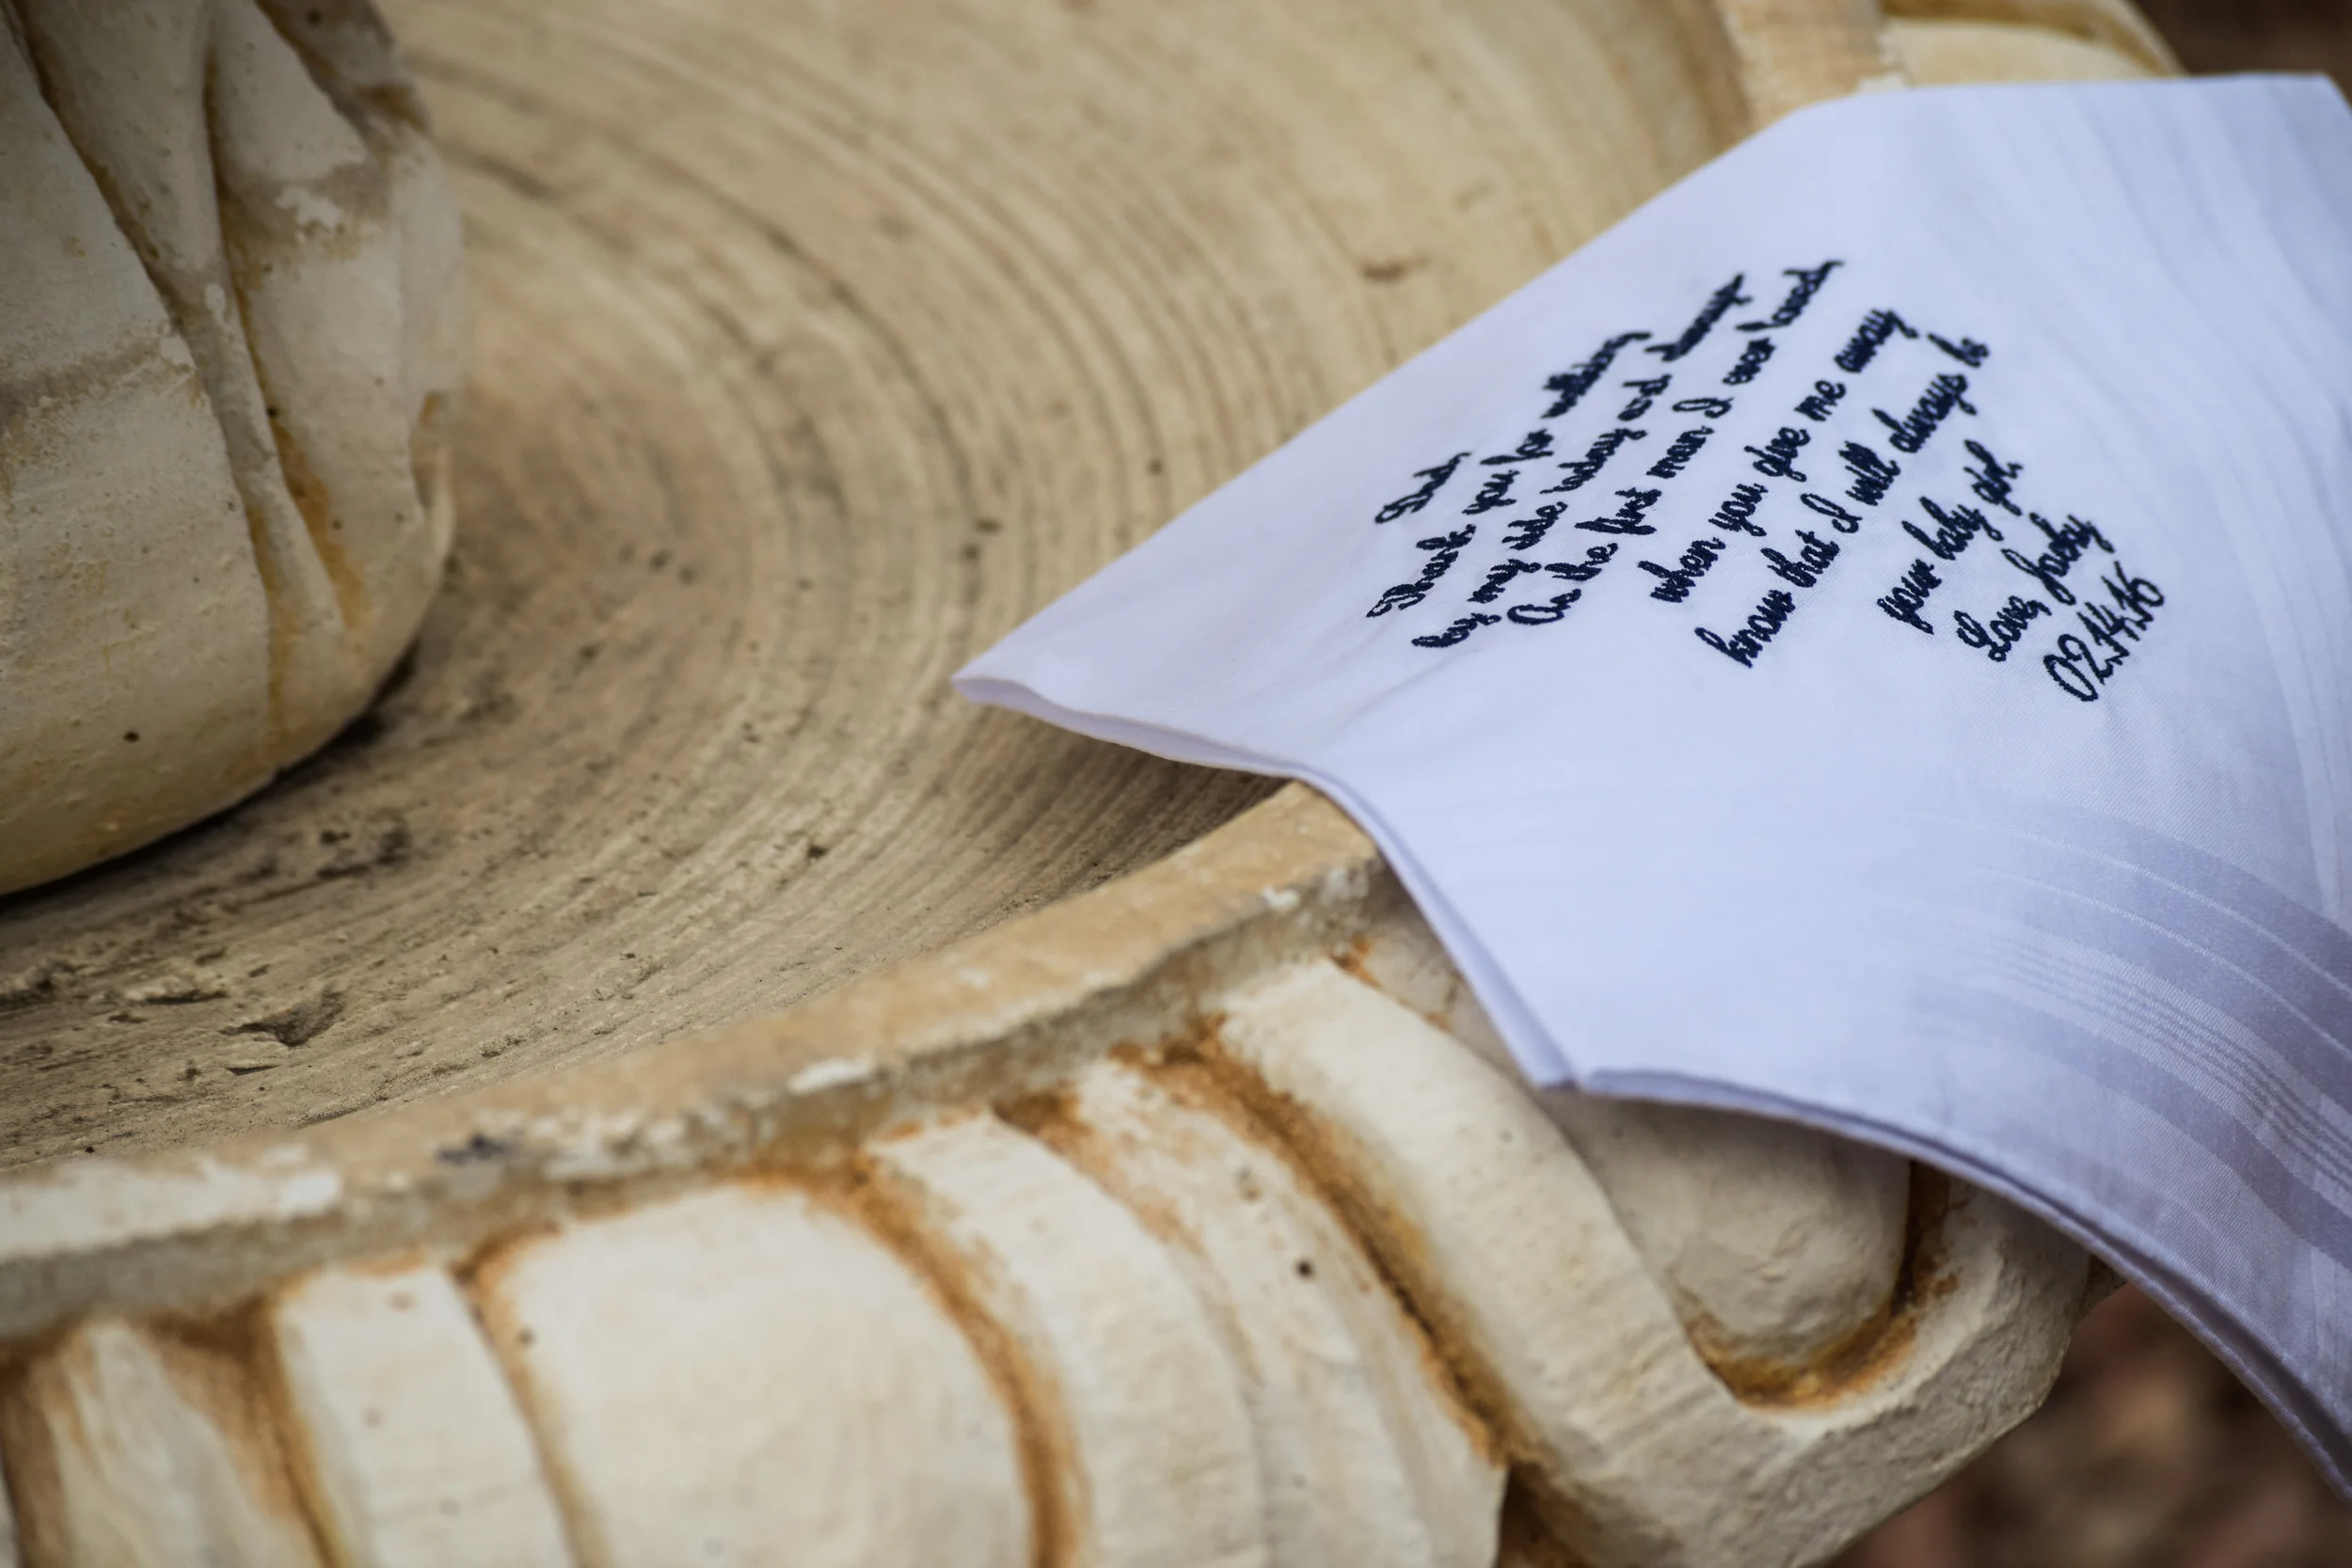 Dad,
Thank you for walking
by my side today and always
As the first man I ever loved,
when you give me away
know that I will always be
your baby girl.
Love, Jacky
02.14.16